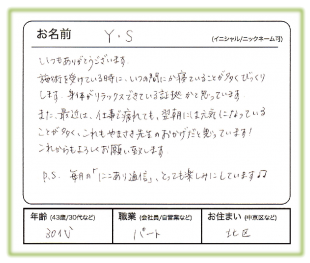 お名前 Y・S (イニシャル/ニックネーム可)
いつもありがとうございます。
施術を受けている時に、いつの間にか寝ていることが多くびっくり
します。身体がリラックスできている証拠かと思っています。
また、最近は、仕事で疲れても、翌朝には元気になっている
ことが多く、これもやまさき先生のおかげだと思っています!
これからもよろしくお願い致します
P.S. 毎月の「にこあり通信」、とっても楽しみにしています♫
年齢 (43歳/30代など) 職業 (会社員/自営業など) お住まい (中京区など)
30代 パート 北区